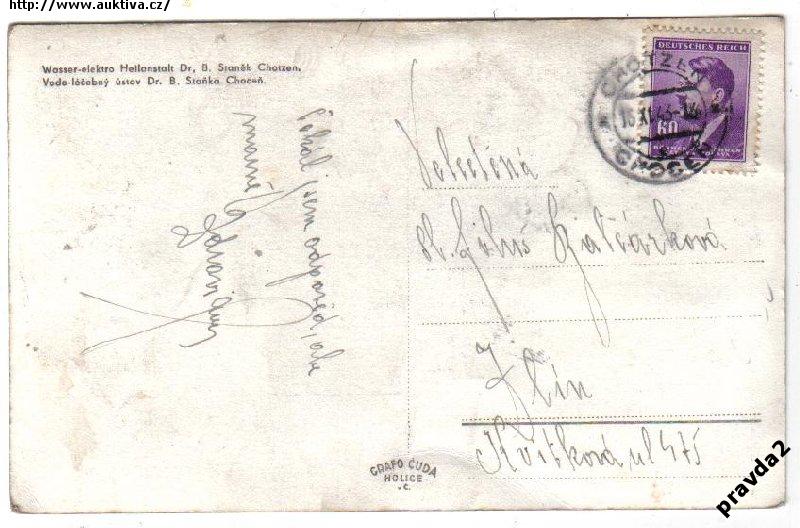 http://www.auktiva.cz/
Wasser-elektro Heilanstalt Dr. B. Staněk Chotzen.
Vodo-léčebný ústav Dr. B. Staňka Choceň.
DEUTSCHES REICH
60
CHOTZEN
CHOCEŇ
Čekal jsem odpověď, ale
marně
Zdraví
Velectěná
sl.
Zlín
Kvítková ul 475
GRAFO ČUDA
HOLICE
pravda2